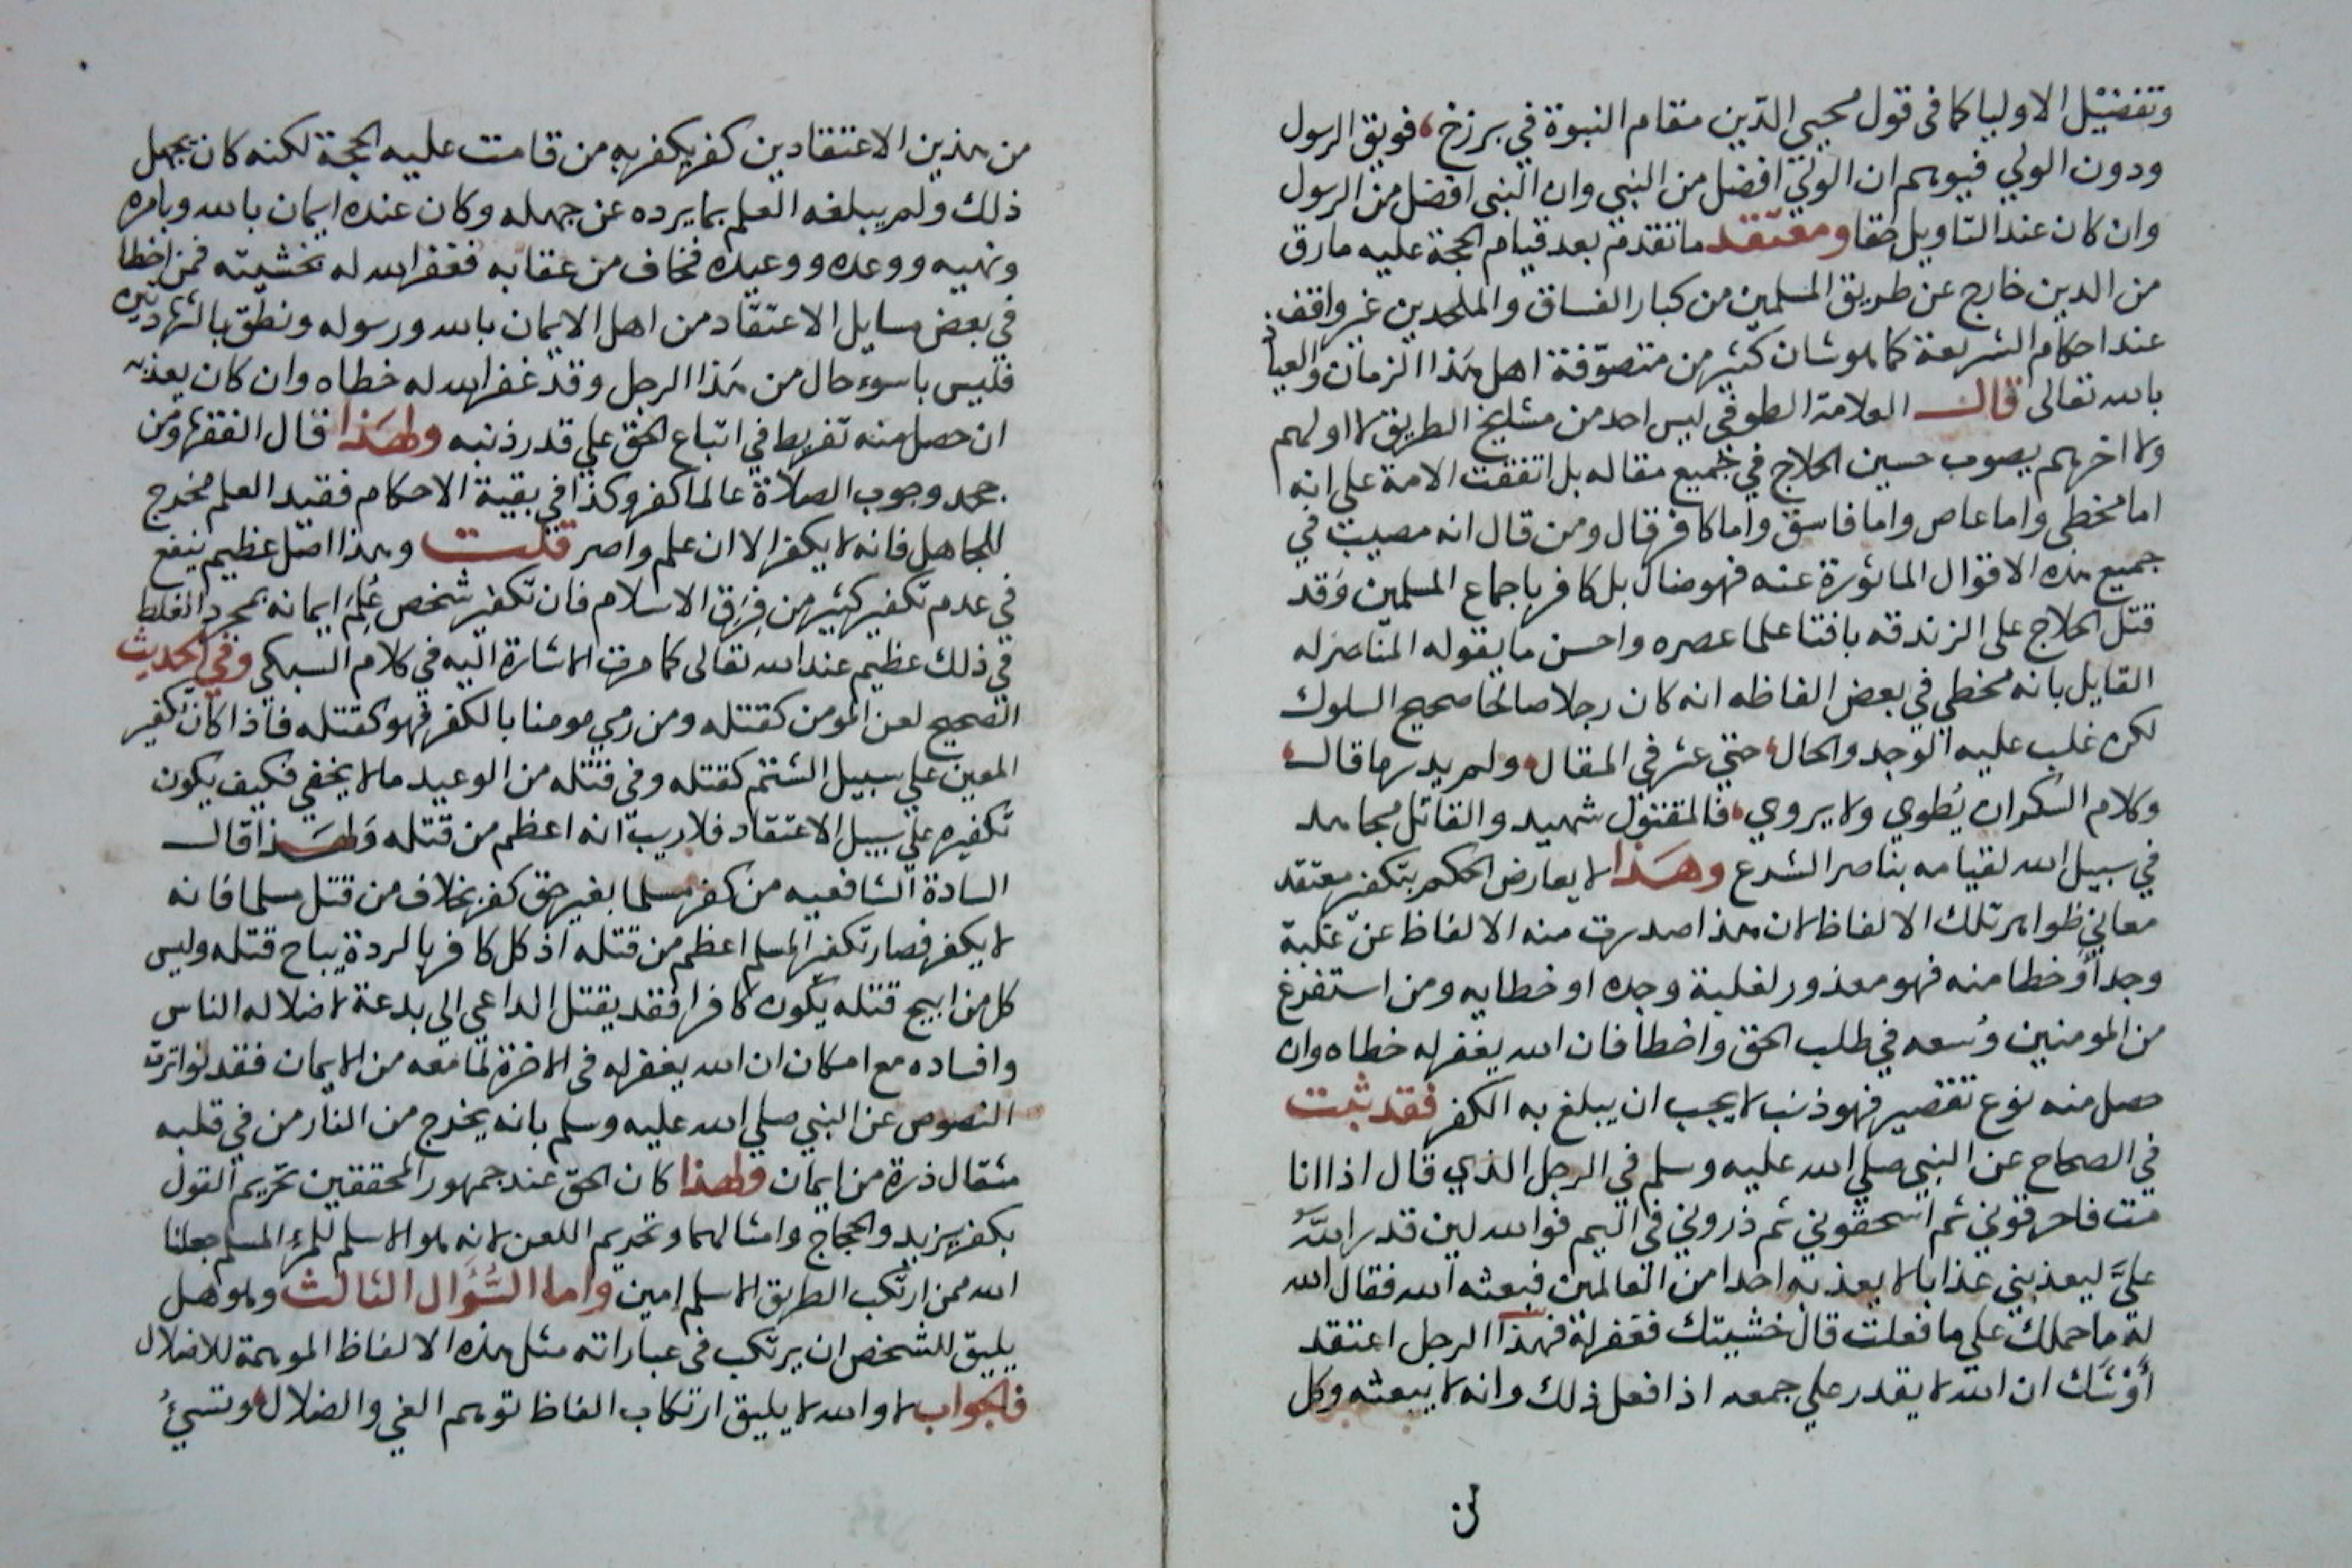 وتفضيل الاوليا كما فى قول محيي الدين مقام النبوة في برزخ، فويق الرسول
ودون الولي فيوهم ان الولي افضل من النبي وان النبي افضل من الرسول
وان كان عند التاويل حقا ومعتقد ما تقدم بعد قيام الحجة عليه مارق
من الدين خارج عن طريق المسلمين من كبار الفساق والملحدين غير واقف
عند احكام الشريعة كما هو شان كثير من متصوفة اهل هذا الزمان والعياذ
بالله تعالى قال العلامة الطوفي ليس احد من مشايخ الطريق لا اولهم
ولا اخرهم يصوب حسين الحلاج في جميع مقاله بل اتفقت الامة على انه
اما مخطي واما عاص واما فاسق واما كافر قال ومن قال انه مصيب في
جميع هذه الاقوال الماثورة عنه فهو ضال بل كافر باجماع المسلمين وقد
قتل الحلاج على الزندقه بافتا علما عصره واحسن ما يقوله المناصر له
القايل بانه مخطي في بعض الفاظه انه كان رجلا صالحا صحيح السلوك
لكن غلب عليه الوجد والحال، حتي عثر في المقال، ولم يدر ما قال،
وكلام السكران يطوي ولا يروي، فالمقتول شهيد والقاتل مجاهد
في سبيل الله لقيامه بناصر الشرع وهذا لا يعارض الحكم بتكفير معتقد
معاني ظواهر تلك الالفاظ لان هذا صدرت منه الالفاظ عن غلبة
وجد او خطا منه فهو معذور لغلبة وجده او خطايه ومن استفرغ
من المومنين وسعه في طلب الحق واخطا فان الله يغفر له خطاه وان
حصل منه نوع تقصير فهو ذنب لا يجب ان يبلغ به الكفر فقد ثبت
في الصحاح عن النبي صلي الله عليه وسلم في الرجل الذي قال اذا انا
مت فاحرقوني ثم اسحقوني ثم ذروني في اليم فوالله لين قدر الله
علي ليعذبني عذابا لا يعذبه احدا من العالمين فبعثه الله فقال الله
له ما حملك علي ما فعلت قال خشيتك فغفر له فهذا الرجل اعتقد
او شك ان الله لا يقدر علي جمعه اذا فعل ذلك وانه لا يبعثه وكل
من
من هذين الاعتقادين كفر يكفر به من قامت عليه الحجة لكنه كان يجهل
ذلك ولم يبلغه العلم بما يرده عن جهله وكان عنده ايمان بالله وبامره
ونهيه ووعده ووعيده فخاف من عقابه فغفر الله له بخشيته فمن اخطا
في بعض مسايل الاعتقاد من اهل الايمان بالله ورسوله ونطق بالشهادتين
فليس باسوء حال من هذا الرجل وقد غفر الله له خطاه وان كان يعذبه
ان حصل منه تفريط في اتباع الحق علي قدر ذنبه ولهذا قال الفقها ومن
جحد وجوب الصلاة عالما كفر وكذا في بقية الاحكام فقيد العلم مخرج
للجاهل فانه لا يكفر الا ان علم واصر قلت وهذا اصل عظيم ينفع
في عدم تكفير كثير من فرق الاسلام فان تكفير شخص علم ايمانه بمجرد الغلط
في ذلك عظيم عند الله تعالى كما مرت الاشارة اليه في كلام السبكي وفي الحديث
الصحيح لعن المومن كقتله ومن رمي مومنا بالكفر فهو كقتله فاذا كان تكفير
المعين علي سبيل الشتم كقتله وفي قتله من الوعيد ما لا يخفي فكيف يكون
تكفيره علي سبيل الاعتقاد فلا ريب انه اعظم من قتله ولهذا قال
السادة الشافعيه من كفر مسلما بغير حق كفر بخلاف من قتل مسلما فانه
لا يكفر فصار تكفير المسلم اعظم من قتله اذ كل كافر بالردة يباح قتله وليس
كل من ابيح قتله يكون كافرا فقد يقتل الداعي الي بدعة لاضلاله الناس
وافساده مع امكان ان الله يغفر له فى الاخرة لما معه من الايمان فقد تواترت
النصوص عن النبي صلي الله عليه وسلم بانه يخرج من النار من في قلبه
مثقال ذرة من ايمان ولهذا كان الحق عند جمهور المحققين تحريم القول
بكفر يزيد والحجاج وامثالهما وتحريم اللعن لانه هو الاسلم للمرء المسلم جعلنا
الله ممن ارتكب الطريق الاسلم امين واما السؤال الثالث وهو هل
يليق للشخص ان يرتكب فى عباراته مثل هذه الالفاظ الموهمة للاضلال
فالجواب لا والله لا يليق ارتكاب الفاظ توهم الغي والضلال، وتسيء